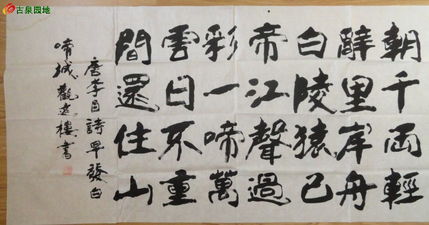 古泉园地
朝辭白帝彩雲間
千里陵江一日還
兩岸猿聲啼不住
輕舟已過萬重山
唐李白詩早發白
啼城觀樓書